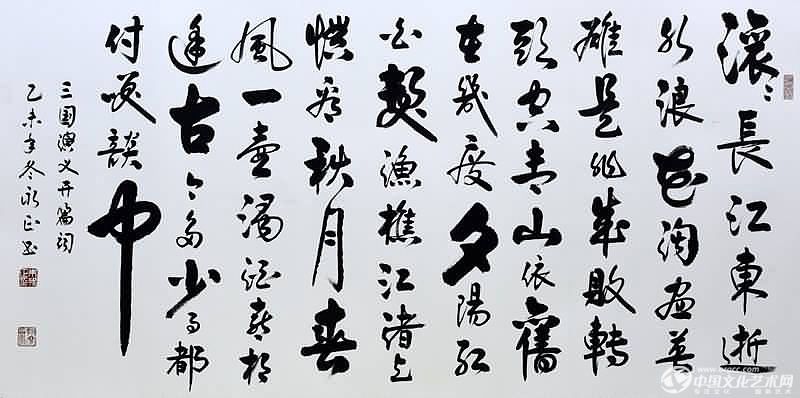 滚〻長江東逝
水浪花淘盡英
雄是非成敗轉
頭空青山依舊
在幾度夕陽红
白髮漁樵江渚上
慣看秋月春
風一壺濁酒喜相
逢古今多少事都
付笑談中
三国演义开篇词
乙未年冬永正书
中国文化艺术网